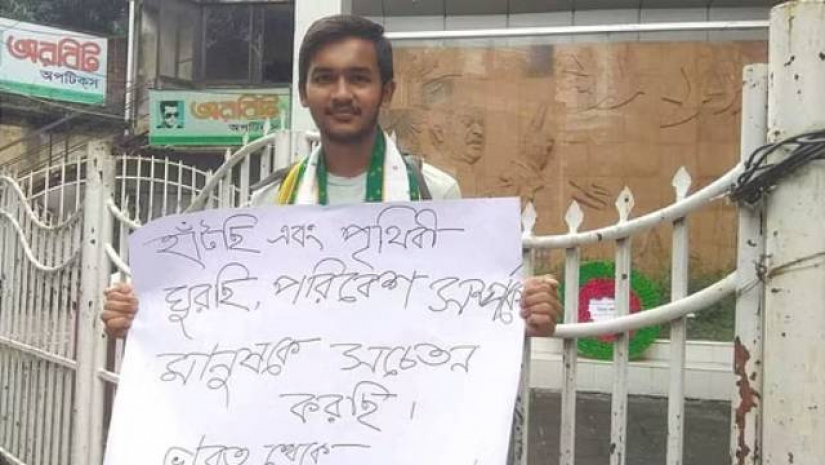 অরবিট
অপটিক্স
অরবিট
অপটিক্স
হাঁটছি এবং পৃথিবী
ঘুরছি, পরিবেশ সম্পর্কে
মানুষকে সচেতন
করছি।
ভারত থেকে